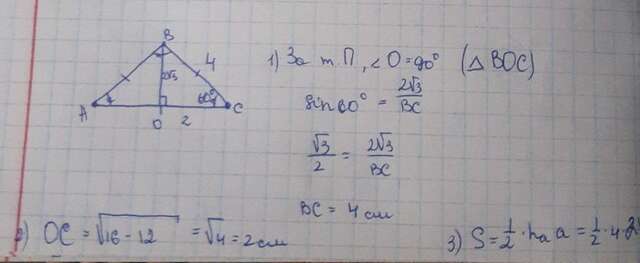 B
2√3
4
60°
A
O
2
C
1) За т.П, ∠O=90° (△BOC)
sin60° = 2√3/BC
√3/2 = 2√3/BC
BC = 4 см
2) OC = √16-12 = √4 = 2 см
3) S = 1/2 · hₐ a = 1/2 · 4 · 2